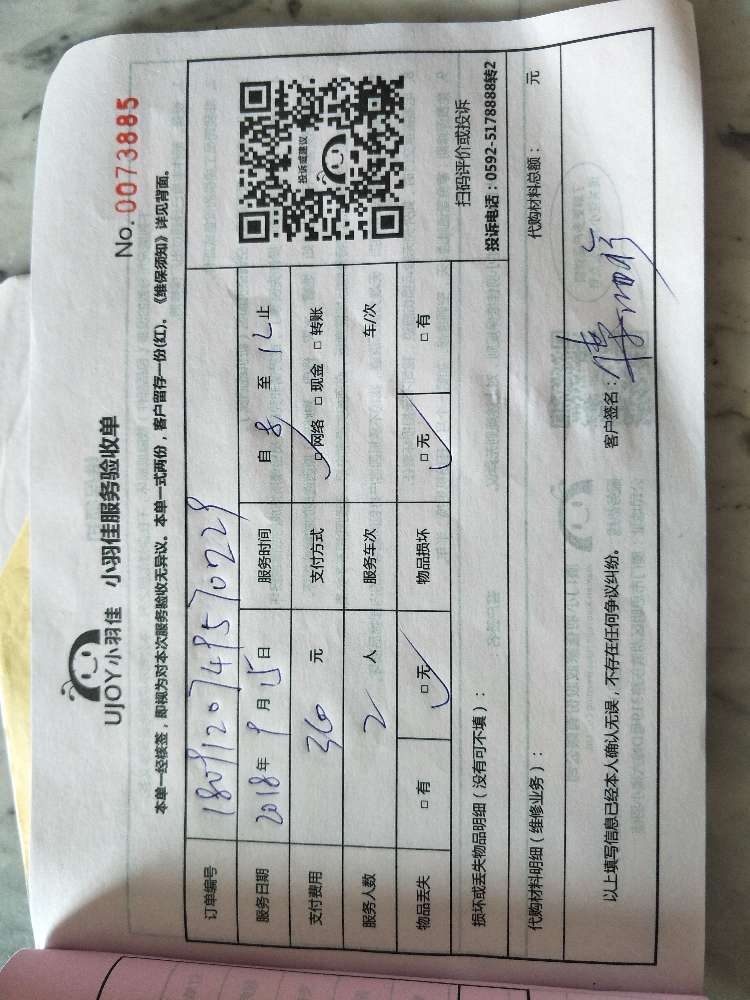 UJOY小羽佳 小羽佳服务验收单
No. 0073885
本单一经核签，即视为对本次服务验收无异议。本单一式两份，客户留存一份(红)。《维保须知》详见背面。
订单编号 1809120749570229
服务日期 2018年9月15日 服务时间 自 8 至 12 止
支付费用 360 元 支付方式 □网络 □现金 □转账
服务人数 2 人 服务车次 车/次
物品丢失 □有 □无 物品损坏 □无 □有
投诉或建议
扫码评价或投诉
投诉电话：0592-5178888转2
损坏或丢失物品明细（没有可不填）：
代购材料明细（维修业务）： 代购材料总额： 元
以上填写信息已经本人确认无误，不存在任何争议纠纷。 客户签名：